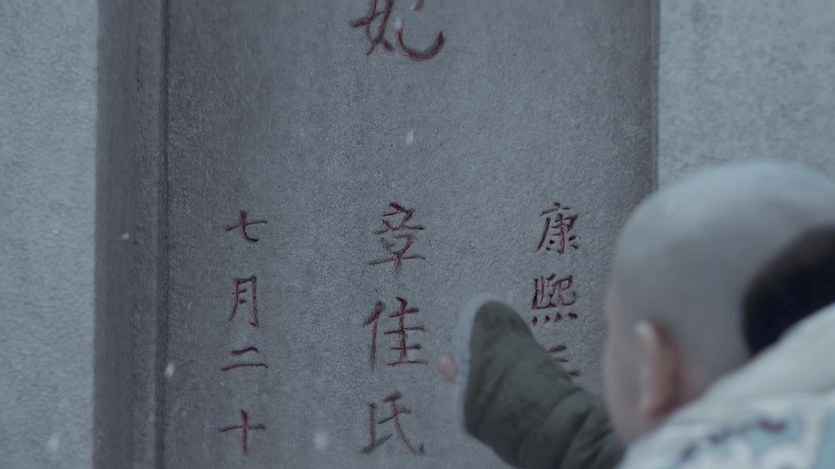 康熙三
妃
章佳氏
七月二十